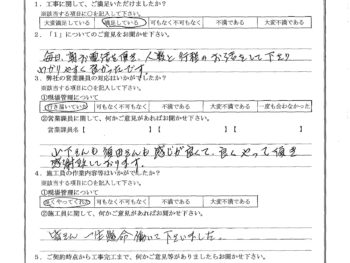 1．工事に関して、ご満足いただけましたか？
※該当する項目に○を記入して下さい。
大変満足している 満足している 可もなく不可もなく 不満である 大変不満である
2．「1」についてのご意見をお聞かせ下さい。
毎日、朝お電話を頂き、人数と行程のお話をして下さり
わかりやすく良かったです。
3．弊社の営業課員の対応はいかがでしたか？
※該当する項目に○を記入して下さい。
①現場管理について
行き届いている 可もなく不可もなく 不満である 大変不満である 一度も会わなかった
②営業課員に関して、何かご意見があればお聞かせ下さい。
営業課員名【 】【 】【 】
山下さんも 須田さんも 感じが良くて、良くやって頂き
感謝致しております。
4．施工員の作業内容等はいかがでしたか？
※該当する項目に○を記入して下さい。
①現場管理について
良くやってくれた 可もなく不可もなく 不満である 大変不満である
②施工員に関して、何かご意見があればお聞かせ下さい。
皆さん 一生懸命 働いて下さいました。
5．ご契約時点から工事完工まで、何かご意見等がありましたらお聞かせ下さい。